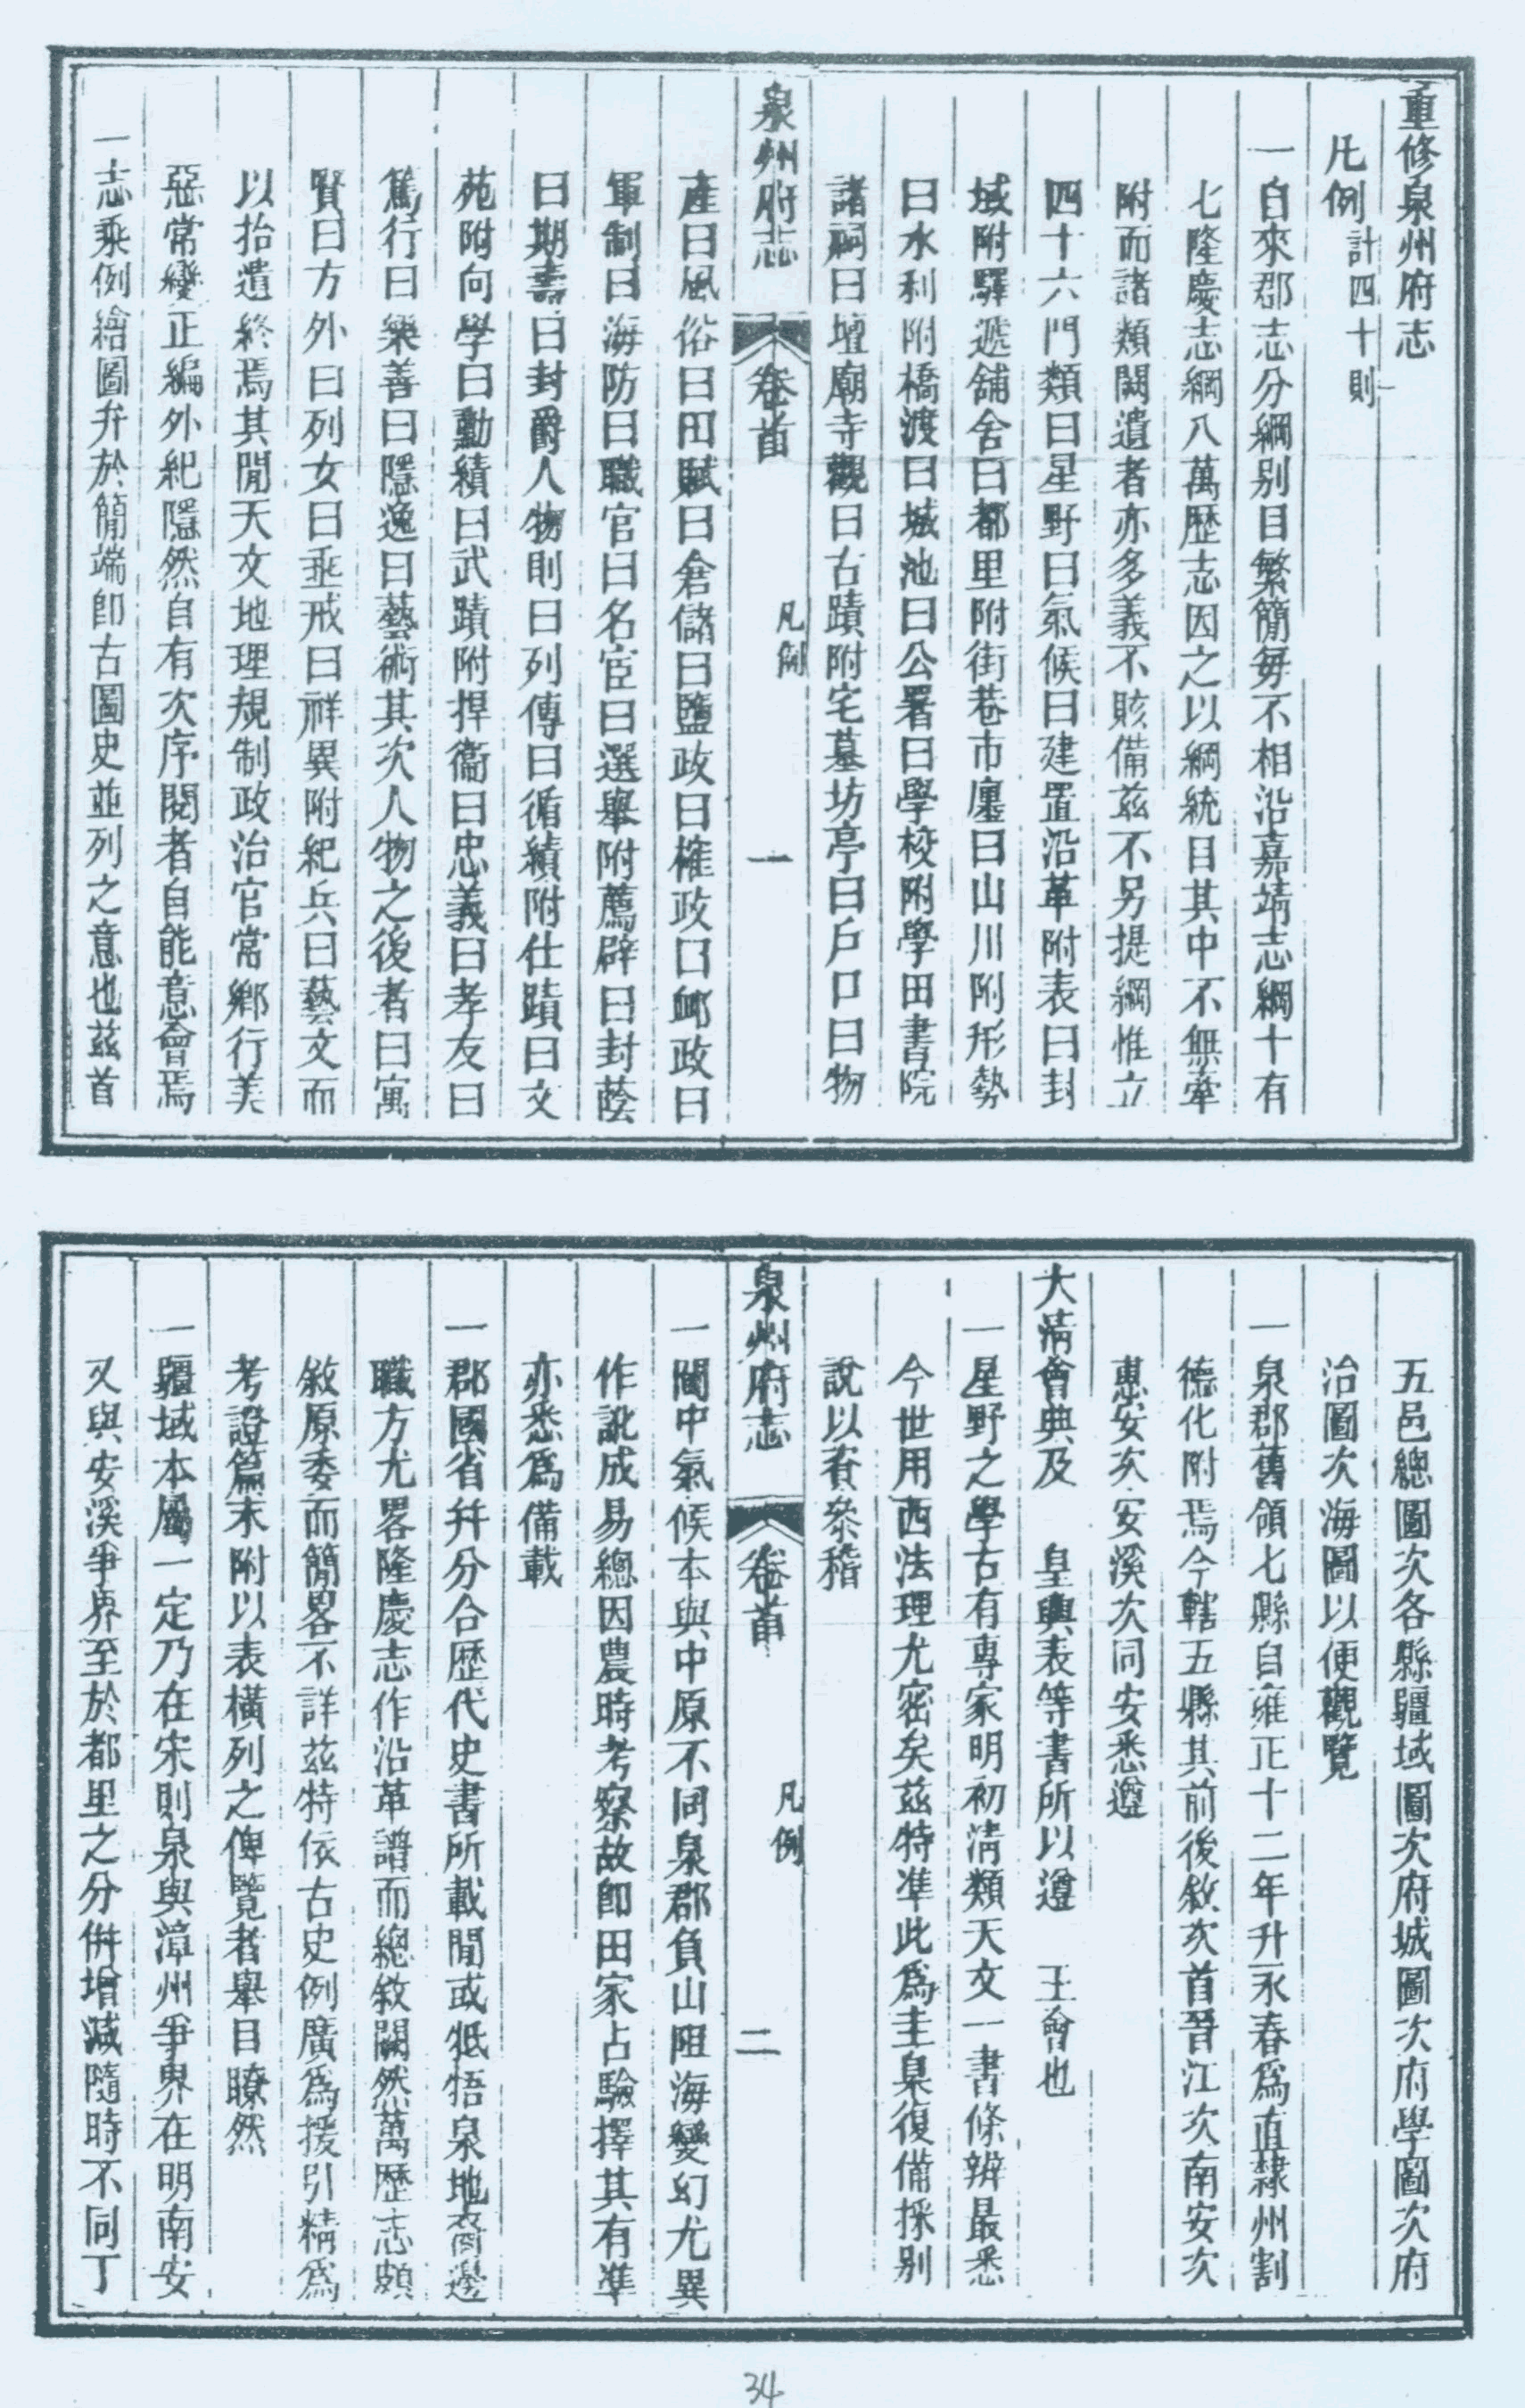 重修泉州府志
凡例計四十則
一自來郡志分綱别目繁簡每不相沿嘉靖志綱十有
七隆慶志綱八萬歷志因之以綱統目其中不無牽
附而諸類闕遺者亦多義不賅備茲不另提綱惟立
四十六門類曰星野曰氣候曰建置沿革附表曰封
域附驛遞舖舍曰都里附街巷市廛曰山川附形勢
曰水利附橋渡曰城池曰公署曰學校附學田書院
諸祠曰壇廟寺觀曰古蹟附宅墓坊亭曰戶口曰物
泉州府志 卷首 凡例 一
產曰風俗曰田賦曰倉儲曰鹽政曰榷政曰郵政曰
軍制曰海防曰職官曰名宦曰選舉附薦辟曰封蔭
曰期壽曰封爵人物則曰列傳曰循績附仕蹟曰文
苑附向學曰勳績曰武蹟附捍衞曰忠義曰孝友曰
篤行曰樂善曰隱逸曰藝術其次人物之後者曰寓
賢曰方外曰列女曰垂戒曰祥異附紀兵曰藝文而
以拾遺終焉其閒天文地理規制政治官常鄉行美
惡常變正編外紀隱然自有次序閱者自能意會焉
一志乘例繪圖弁於簡端卽古圖史並列之意也茲首
五邑總圖次各縣疆域圖次府城圖次府學圖次府
治圖次海圖以便觀覽
一泉郡舊領七縣自雍正十二年升永春爲直隸州割
德化附焉今轄五縣其前後敘次首晉江次南安次
惠安次安溪次同安悉遵
大淸會典及 皇輿表等書所以遵 王會也
一星野之學古有專家明初淸類天文一書條辨最悉
今世用西法理尤密矣茲特準此爲圭臬復備採别
說以資叅稽
泉州府志 卷首 凡例 二
一閩中氣候本與中原不同泉郡負山阻海變幻尤異
作訛成易總因農時考察故卽田家占驗擇其有準
亦悉爲備載
一郡國省幷分合歷代史書所載閒或牴牾泉地裔邊
職方尤畧隆慶志作沿革譜而總敘闕然萬歷志頗
敘原委而簡畧不詳茲特依古史例廣爲援引精爲
考證篇末附以表橫列之俾覽者舉目瞭然
一疆域本屬一定乃在宋則泉與漳州爭界在明南安
又與安溪爭界至於都里之分倂增減隨時不同丁
34